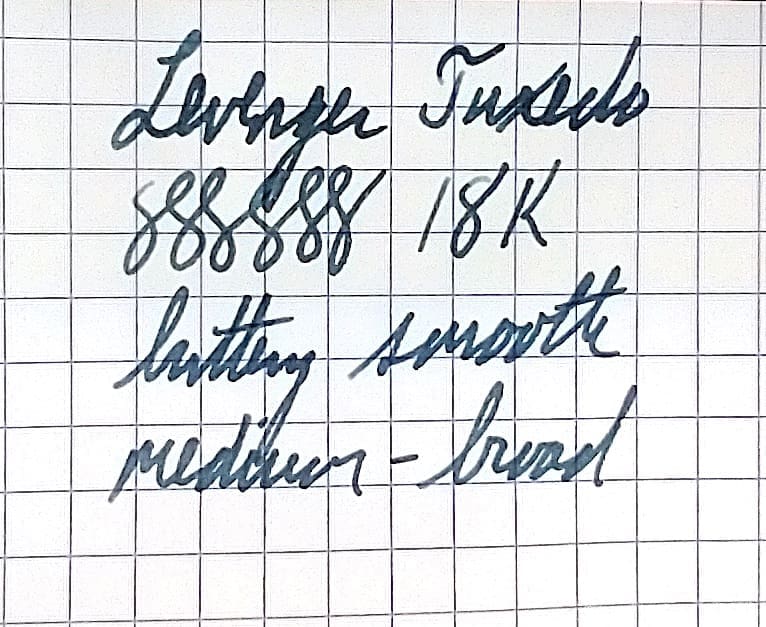 Levenger Tuxedo
888888 18K
buttery smooth
medium - broad